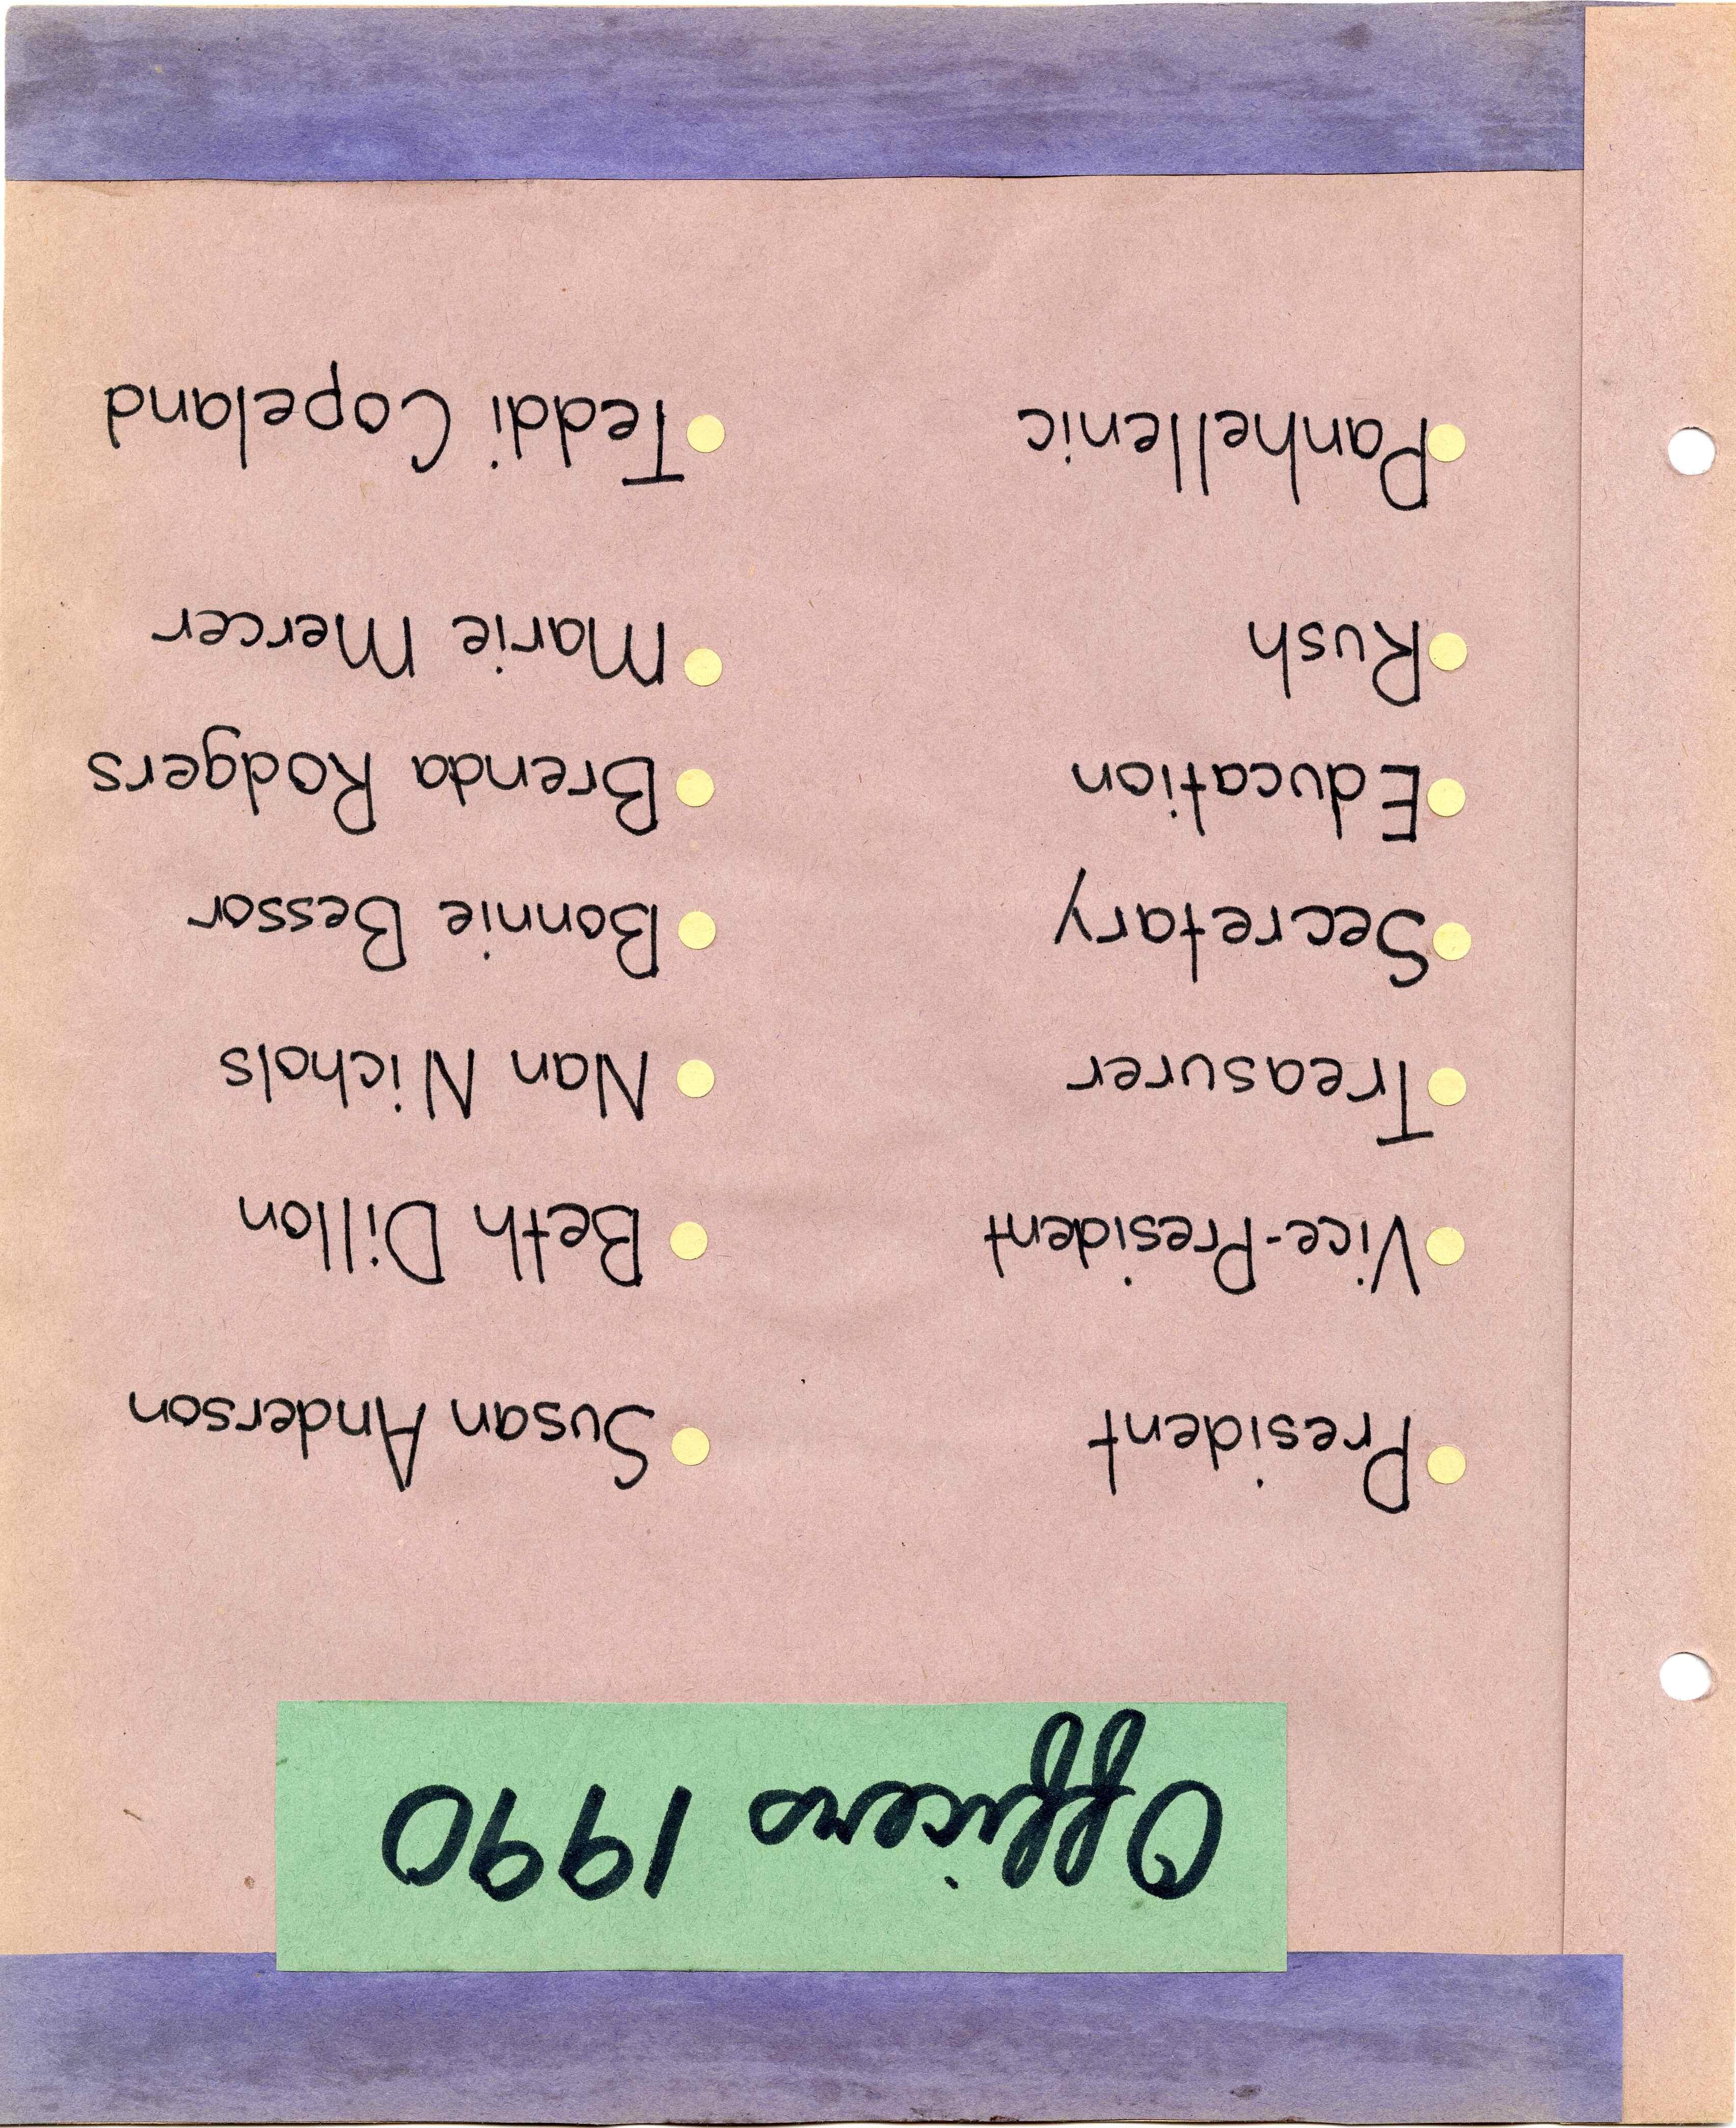 Officers 1990
President Susan Anderson
Vice-President Beth Dillon
Treasurer Nan Nichols
Secretary Bonnie Bessor
Education Brenda Rodgers
Rush Marie Mercer
Panhellenic Teddi Copeland